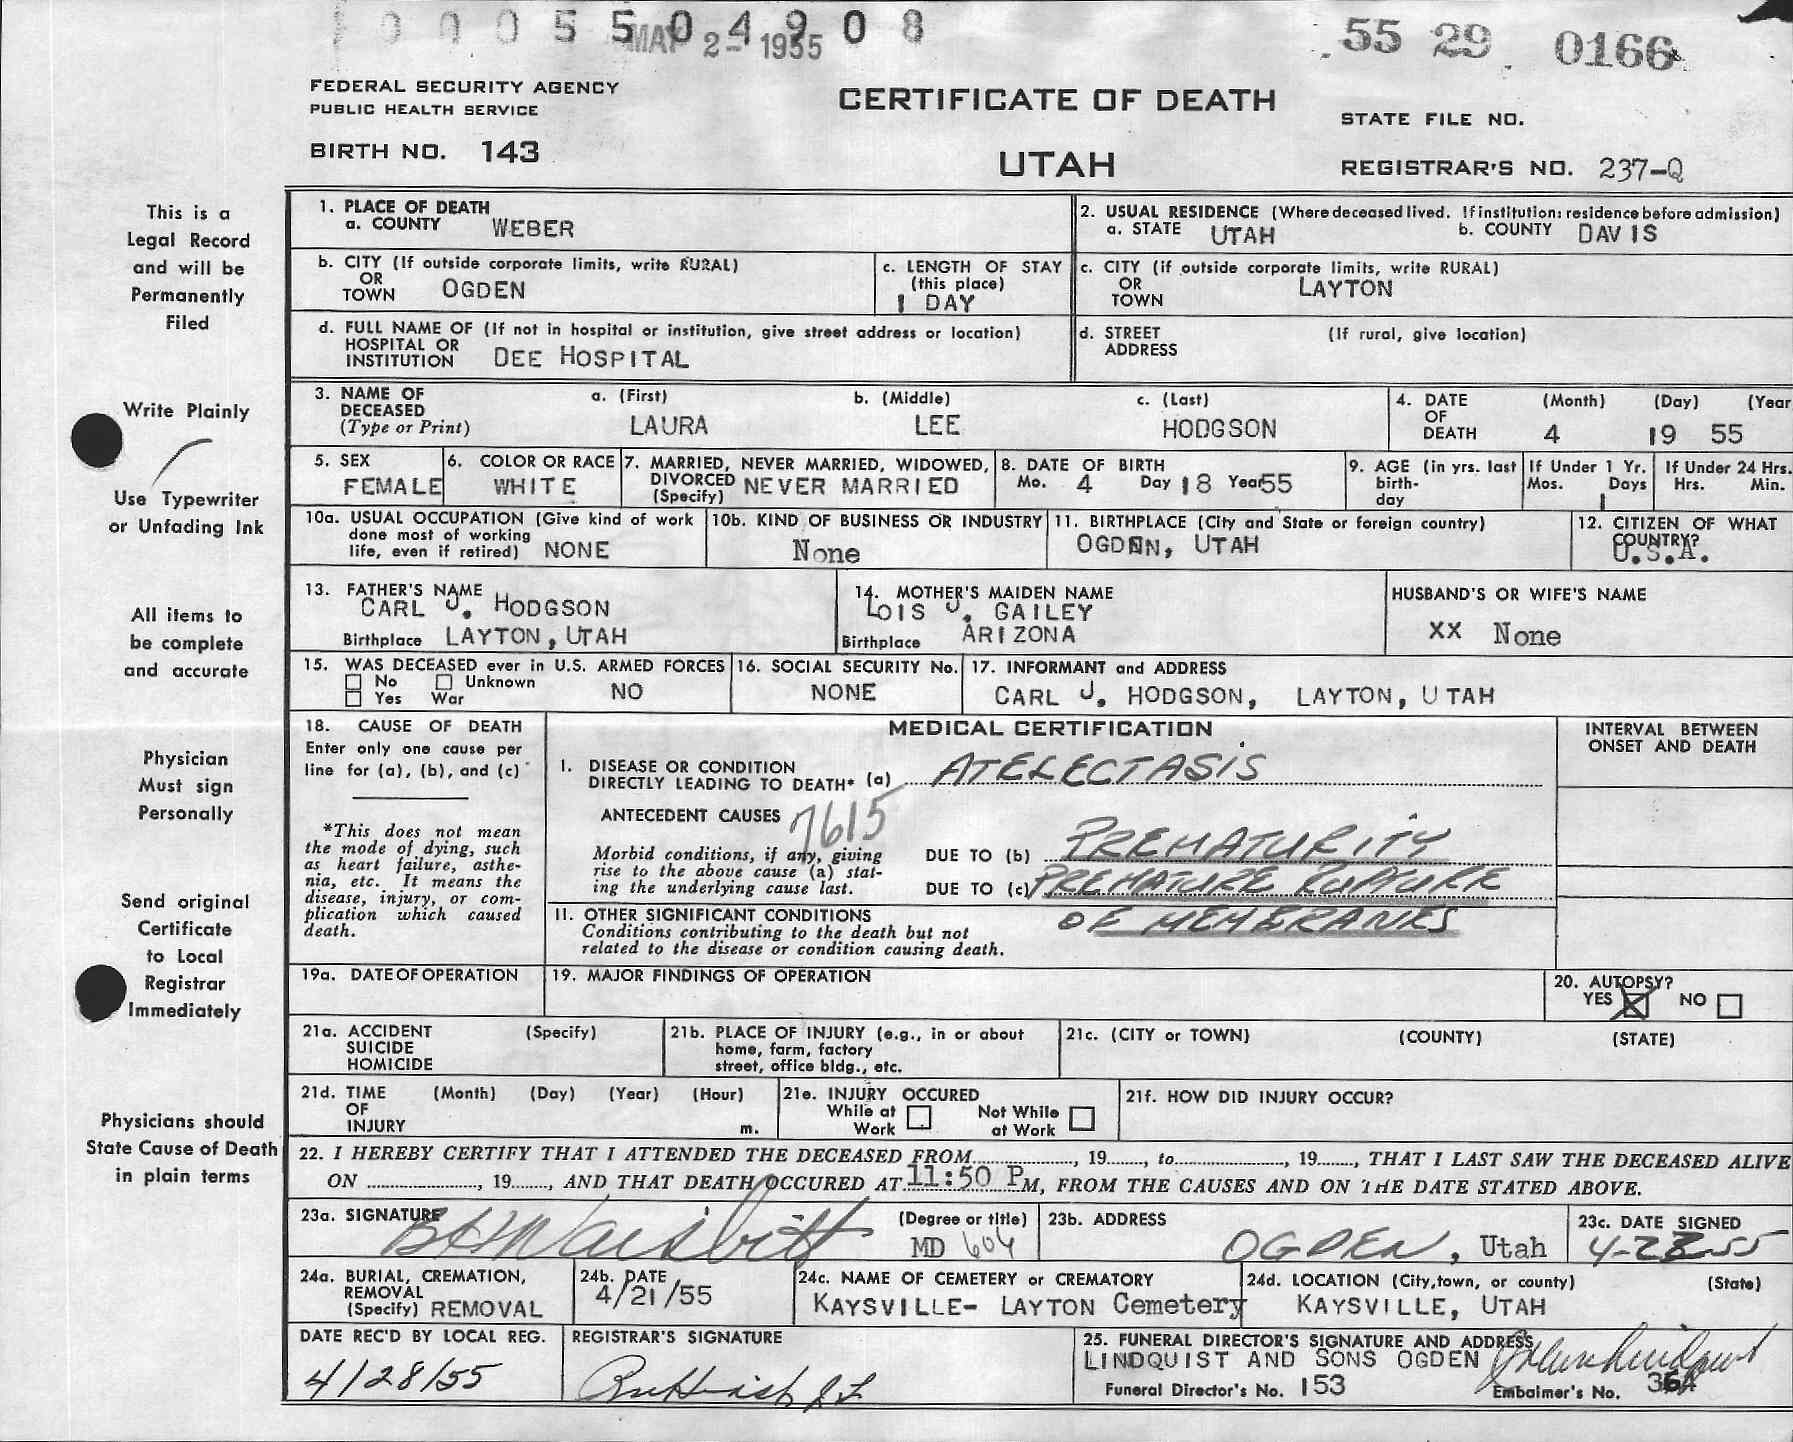 0 0 0 5 5 0 4 9 0 8
MAY 2-1955
55 29 0166
FEDERAL SECURITY AGENCY
PUBLIC HEALTH SERVICE
CERTIFICATE OF DEATH
STATE FILE NO.
BIRTH NO. 143
UTAH
REGISTRAR'S NO. 237-Q
This is a
Legal Record
and will be
Permanently
Filed
Write Plainly
Use Typewriter
or Unfading Ink
All items to
be complete
and accurate
Physician
Must sign
Personally
Send original
Certificate
to Local
Registrar
Immediately
Physicians should
State Cause of Death
in plain terms
1. PLACE OF DEATH
a. COUNTY WEBER
2. USUAL RESIDENCE (Where deceased lived. If institution: residence before admission)
a. STATE UTAH b. COUNTY DAVIS
b. CITY (If outside corporate limits, write RURAL)
OR
TOWN OGDEN
c. LENGTH OF STAY
(this place)
1 DAY
c. CITY (if outside corporate limits, write RURAL)
OR
TOWN LAYTON
d. FULL NAME OF (If not in hospital or institution, give street address or location)
HOSPITAL OR
INSTITUTION DEE HOSPITAL
d. STREET (If rural, give location)
ADDRESS
3. NAME OF
DECEASED
(Type or Print)
a. (First) b. (Middle) c. (Last)
LAURA LEE HODGSON
4. DATE (Month) (Day) (Year
OF
DEATH 4 19 55
5. SEX
FEMALE
6. COLOR OR RACE
WHITE
7. MARRIED, NEVER MARRIED, WIDOWED,
DIVORCED
(Specify) NEVER MARRIED
8. DATE OF BIRTH
Mo. 4 Day 18 Year 55
9. AGE (in yrs. last
birth-
day
If Under 1 Yr.
Mos. Days
1
If Under 24 Hrs.
Hrs. Min.
10a. USUAL OCCUPATION (Give kind of work
done most of working
life, even if retired) NONE
10b. KIND OF BUSINESS OR INDUSTRY
None
11. BIRTHPLACE (City and State or foreign country)
OGDEN, UTAH
12. CITIZEN OF WHAT
COUNTRY?
U.S.A.
13. FATHER'S NAME
CARL J. HODGSON
Birthplace LAYTON, UTAH
14. MOTHER'S MAIDEN NAME
LOIS J. GAILEY
Birthplace ARIZONA
HUSBAND'S OR WIFE'S NAME
XX None
15. WAS DECEASED ever in U.S. ARMED FORCES
No Unknown
Yes War NO
16. SOCIAL SECURITY No.
NONE
17. INFORMANT and ADDRESS
CARL J. HODGSON, LAYTON, UTAH
18. CAUSE OF DEATH
Enter only one cause per
line for (a), (b), and (c)
*This does not mean
the mode of dying, such
as heart failure, asthe-
nia, etc. It means the
disease, injury, or com-
plication which caused
death.
MEDICAL CERTIFICATION
INTERVAL BETWEEN
ONSET AND DEATH
I. DISEASE OR CONDITION
DIRECTLY LEADING TO DEATH* (a) ATELECTASIS
ANTECEDENT CAUSES 7615
Morbid conditions, if any, giving
rise to the above cause (a) stat-
ing the underlying cause last.
DUE TO (b) PREMATURITY
DUE TO (c) PREMATURE RUPTURE
OF MEMBRANES
II. OTHER SIGNIFICANT CONDITIONS
Conditions contributing to the death but not
related to the disease or condition causing death.
19a. DATE OF OPERATION
19. MAJOR FINDINGS OF OPERATION
20. AUTOPSY?
YES X NO
21a. ACCIDENT (Specify)
SUICIDE
HOMICIDE
21b. PLACE OF INJURY (e.g., in or about
home, farm, factory
street, office bldg., etc.
21c. (CITY or TOWN) (COUNTY) (STATE)
21d. TIME (Month) (Day) (Year) (Hour)
OF
INJURY m.
21e. INJURY OCCURED
While at Work
Not While at Work
21f. HOW DID INJURY OCCUR?
22. I HEREBY CERTIFY THAT I ATTENDED THE DECEASED FROM........, 19......, to........, 19......, THAT I LAST SAW THE DECEASED ALIVE
ON ........, 19......, AND THAT DEATH OCCURED AT 11:50 PM, FROM THE CAUSES AND ON THE DATE STATED ABOVE.
23a. SIGNATURE (Degree or title)
Naisbitt MD 604
23b. ADDRESS
OGDEN, Utah
23c. DATE SIGNED
24a. BURIAL, CREMATION,
REMOVAL
(Specify) REMOVAL
24b. DATE
4/21/55
24c. NAME OF CEMETERY or CREMATORY
KAYSVILLE- LAYTON Cemetery
24d. LOCATION (City, town, or county) (State)
KAYSVILLE, UTAH
DATE REC'D BY LOCAL REG.
4/28/55
REGISTRAR'S SIGNATURE
25. FUNERAL DIRECTOR'S SIGNATURE AND ADDRESS
LINDQUIST AND SONS OGDEN
Funeral Director's No. 153 Embalmer's No. 364